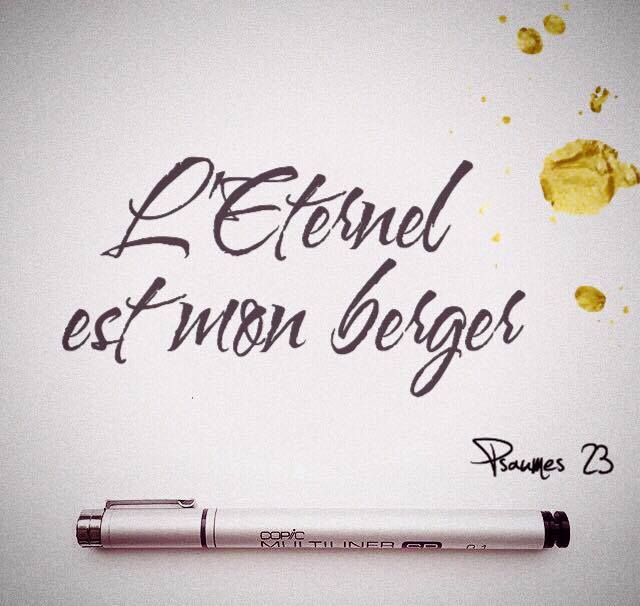 L'Eternel
est mon berger
Psaumes 23
COPIC
MULTILINER SP 0.1